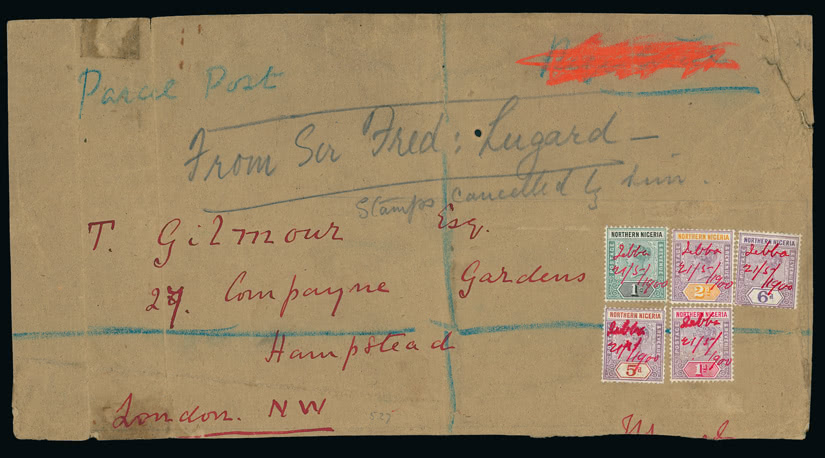 Parcel Post
From Sir Fred: Lugard —
Stamps cancelled by him.
T. Gilmour Esq.
27. Compayne Gardens
Hampstead
London. NW
NORTHERN NIGERIA
Jebba
21/5/1900
1s
NORTHERN NIGERIA
Jebba
21/5/1900
2d
NORTHERN NIGERIA
Jebba
21/5/1900
6d
NORTHERN NIGERIA
Jebba
21/5/1900
5d
NORTHERN NIGERIA
Jebba
21/5/1900
1d